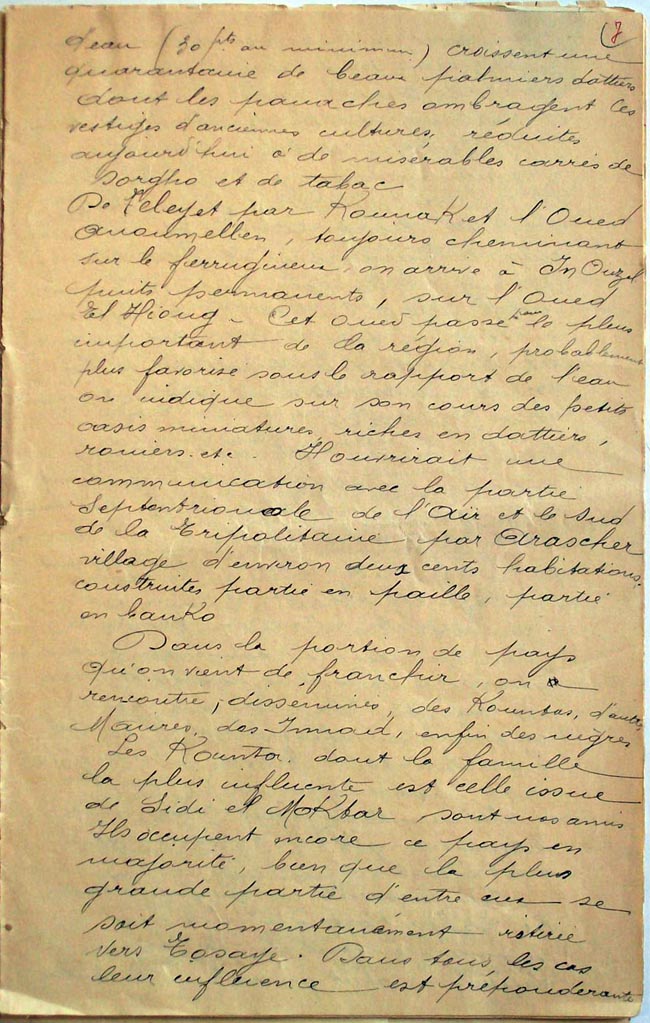 7
d'eau (30 pts au minimum) croissent une
quarantaine de beaux palmiers dattiers
dont les panaches ombragent ces
vestiges d'anciennes cultures, réduites
aujourd'hui à de misérables carrés de
sorgho et de tabac
De Teleyet par Kounak et l'Oued
Anoumellen, toujours cheminant
sur le ferrugineux, on arrive à In Ouzel
puits permanents, sur l'Oued
El Hioug - Cet Oued passe pour le plus
important de la région, probablement
plus favorisé sous le rapport de l'eau
on indique sur son cours des petits
oasis miniatures, riches en dattiers,
roniers etc. Il ouvrirait une
communication avec la partie
Septentrionale de l'Aïr et le Sud
de la Tripolitaine par Arascher
village d'environ deux cents habitations,
construites partie en paille, partie
en banko
Dans la portion de pays
qu'on vient de franchir, on a
rencontré, disséminés, des Kountas, d'autres
Maures, des Imrad, enfin des nègres
Les Kounta. dont la famille
la plus influente est celle issue
de Sidi el Moktar sont nos amis
Ils occupent encore ce pays en
majorité, bien que la plus
grande partie d'entre eux se
soit momentanément retirée
vers Tosaye. Dans tous les cas
leur influence est prépondérante